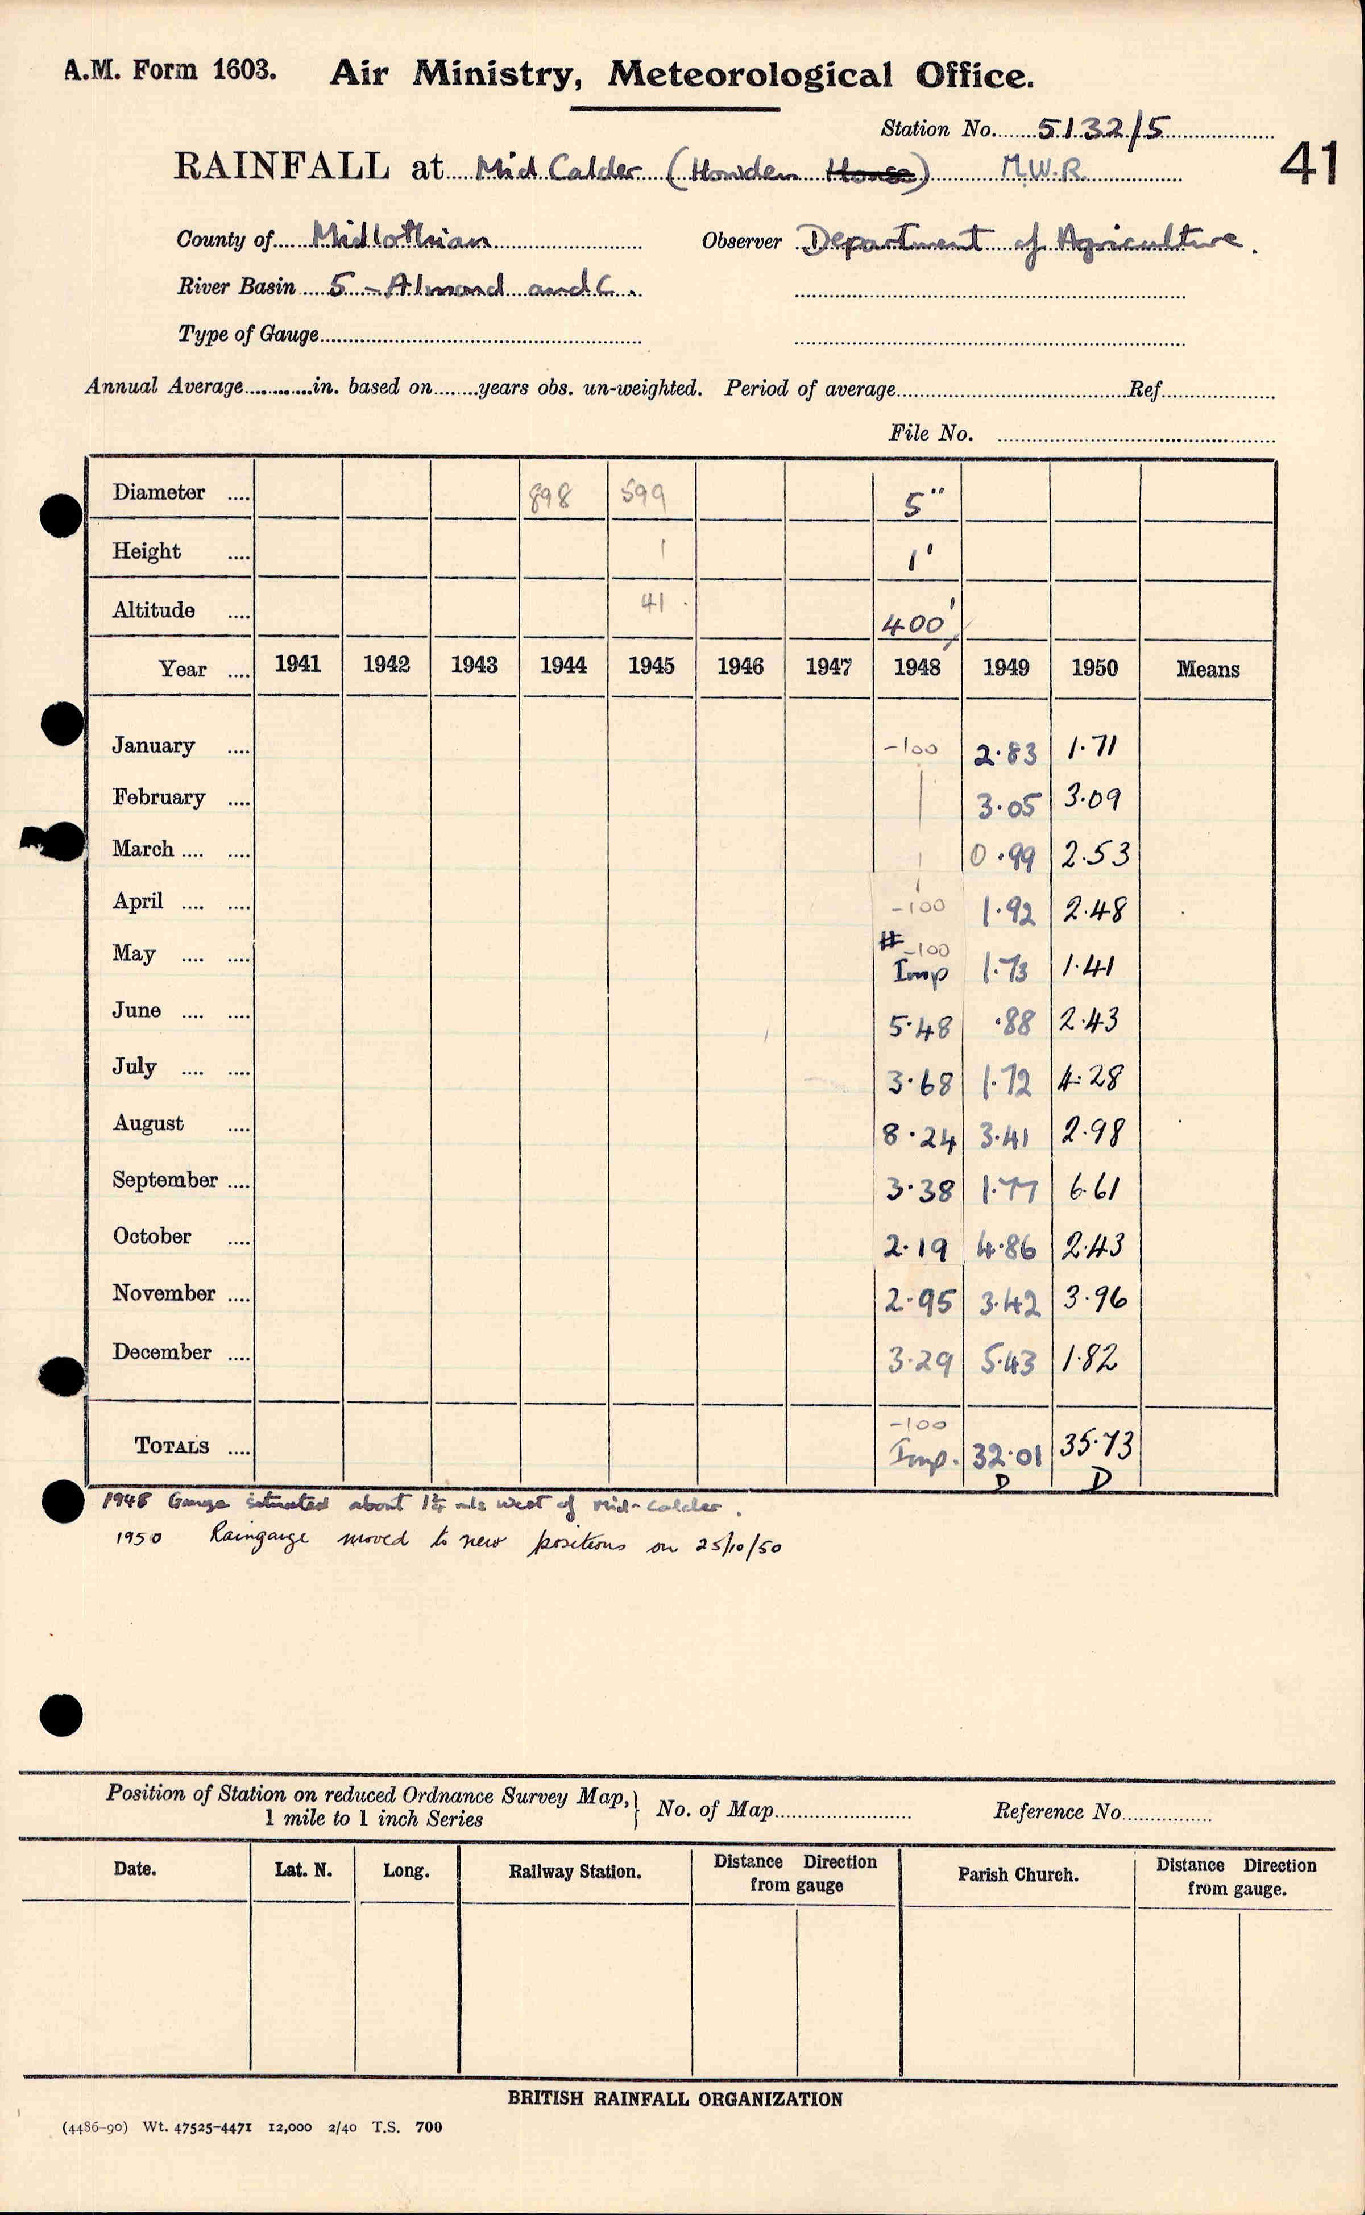 A.M. Form 1603. Air Ministry, Meteorological Office.
Station No. 5132/5
RAINFALL at Mid Calder (Howden House) M.W.R. 41
County of Midlothian Observer Department of Agriculture.
River Basin 5 - Almond and C.
Type of Gauge
Annual Average in. based on years obs. un-weighted. Period of average Ref
File No.
Diameter .... 898 599 5"
Height .... 1 1'
Altitude .... 41 400'
Year .... 1941 1942 1943 1944 1945 1946 1947 1948 1949 1950 Means
January .... -100 2.83 1.71
February .... 3.05 3.09
March .... .... 0.99 2.53
April .... .... -100 1.92 2.48
May .... .... # -100 Imp 1.73 1.41
June .... .... 5.48 .88 2.43
July .... .... 3.68 1.72 4.28
August .... 8.24 3.41 2.98
September .... 3.38 1.77 6.61
October .... 2.19 4.86 2.43
November .... 2.95 3.42 3.96
December .... 3.29 5.43 1.82
TOTALS .... -100 Imp. 32.01 35.73
D D
1948 Gauge situated about 1¼ mls West of Mid-Calder.
1950 Raingauge moved to new positions on 25/10/50
Position of Station on reduced Ordnance Survey Map, 1 mile to 1 inch Series } No. of Map Reference No.
Date. Lat. N. Long. Railway Station. Distance Direction from gauge Parish Church. Distance Direction from gauge.
BRITISH RAINFALL ORGANIZATION
(4486-90) Wt. 47525-4471 12,000 2/40 T.S. 700